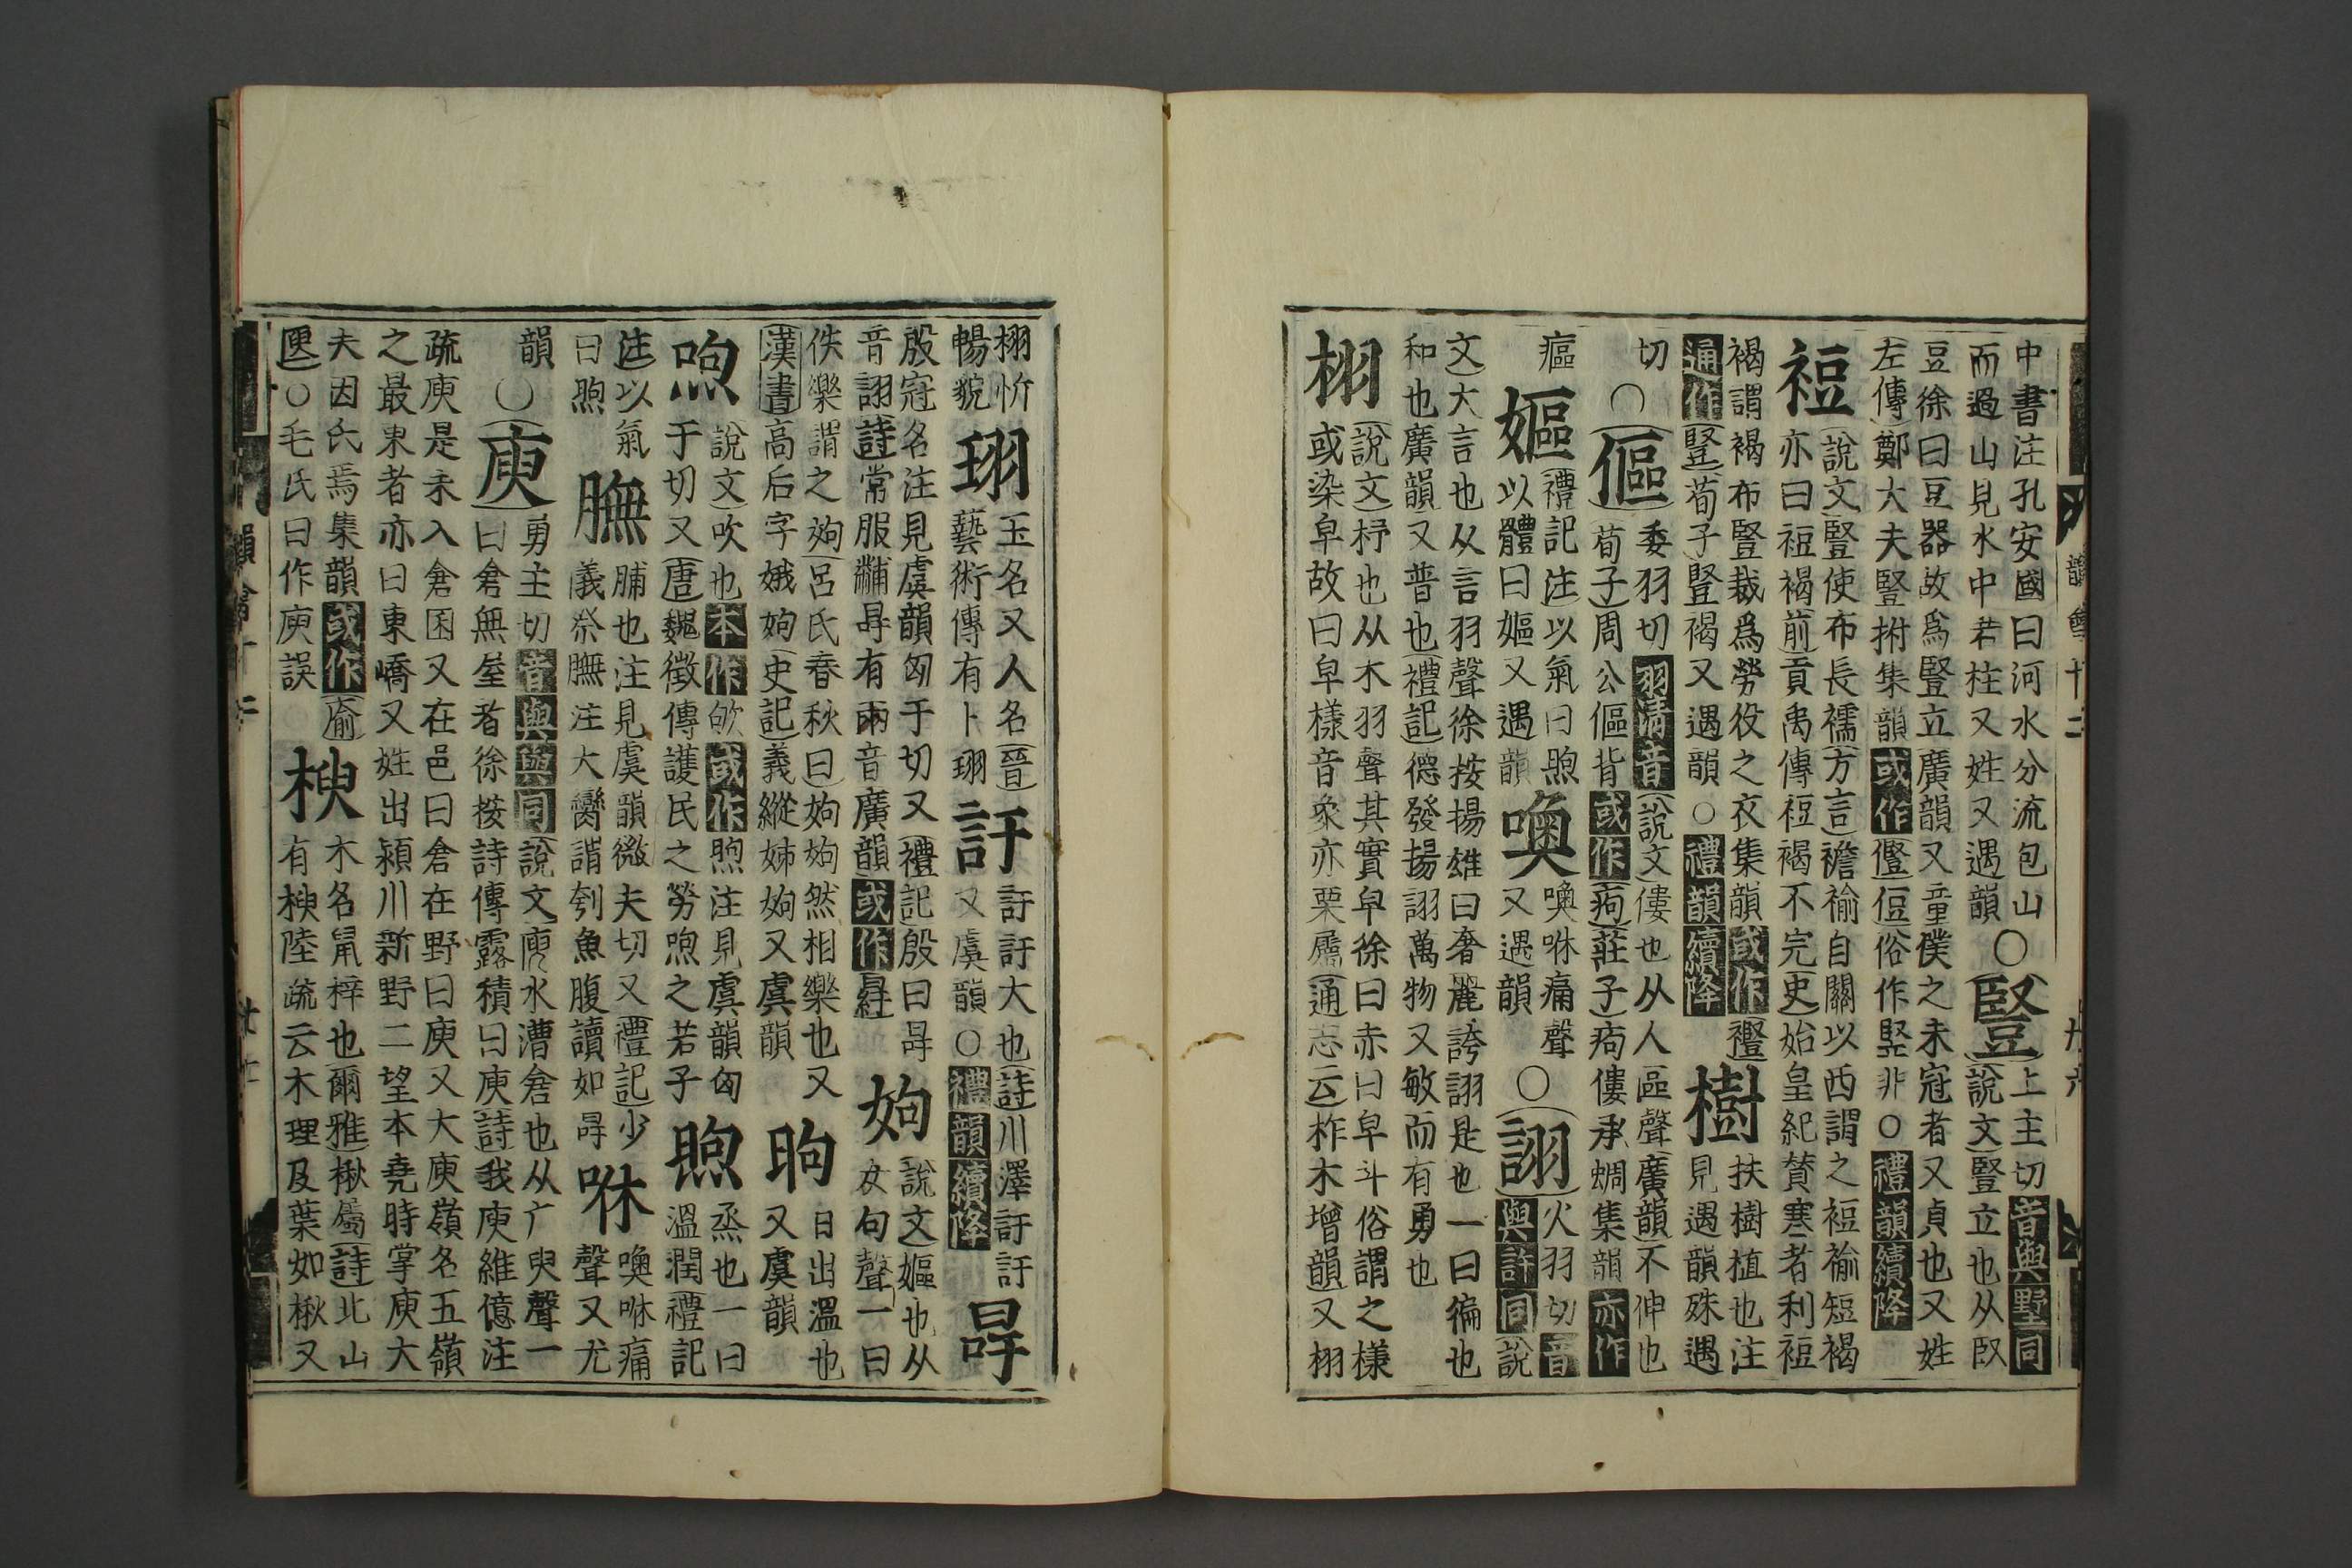 中書注孔安國曰河水分流包山
而過山見水中若柱又姓又遇韻
○豎
上主切音與墅同
說文豎立也从臤
豆徐曰豆器故爲豎立廣韻又童僕之未冠者又貞也又姓
左傳鄭大夫豎拊集韻或作𠐊侸俗作竪非○禮韻續降
裋
說文豎使布長襦方言襜褕自關以西謂之裋褕短褐
亦曰裋褐前貢禹傳裋褐不完史始皇紀賛寒者利裋
褐謂褐布豎裁爲勞役之衣集韻或作𧞫
通作豎荀子豎褐又遇韻○禮韻續降
樹
扶樹植也注
見遇韻殊遇
切
○傴
委羽切羽淸音說文僂也从人區聲廣韻不伸也
荀子周公傴背或作痀莊子痀僂承蜩集韻亦作
瘟
嫗
禮記注以氣曰煦
以體曰嫗又遇韻
噢
噢咻痛聲
又遇韻
○詡
火羽切音
與許同說
文大言也从言羽聲徐按揚雄曰奢麗誇詡是也一曰徧也
和也廣韻又普也禮記德發揚詡萬物又敏而有勇也
栩
說文杼也从木羽聲其實皁徐曰赤曰皁斗俗謂之樣
或染皁故曰皁樣音象亦栗屬通志云柞木增韻又栩
栩忻
暢貌
珝
玉名又人名晉
藝術傳有卜珝
訏
訏訏大也詩川澤訏訏
又虞韻○禮韻續降
冔
殷冠名注見虞韻匈于切又禮記殷曰冔
音詡詩常服黼冔有兩音廣韻或作
姁
說文嫗也从
女句聲一曰
佚樂謂之姁呂氏春秋曰姁姁然相樂也又
漢書高后字娥姁史記義縱姊姁又虞韻
昫
日出溫也
又虞韻
喣
說文吹也本作欨或作煦注見虞韻匈
于切又唐魏徵傳護民之勞喣之若子
煦
烝也一曰
溫潤禮記
注以氣
曰煦
膴
脯也注見虞韻微夫切又禮記少
儀祭膴注大臠謂刳魚腹讀如冔
咻
噢咻痛
聲又尤
韻
○庾
勇主切音與與同說文庾水漕倉也从广臾聲一
曰倉無屋者徐按詩傳露積曰庾詩我庾維億注
疏庾是未入倉囷又在邑曰倉在野曰庾又大庾嶺名五嶺
之最東者亦曰東嶠又姓出潁川新野二望本堯時掌庾大
夫因氏焉集韻或作㔱
匬○毛氏曰作庾誤
楰
木名鼠梓也爾雅楸屬詩北山
有楰陸疏云木理及葉如楸又